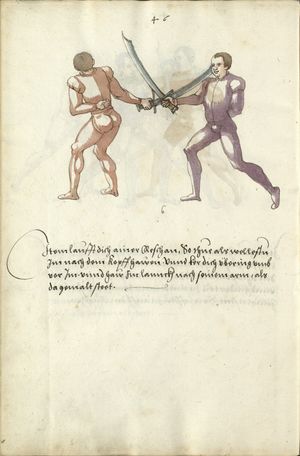 46
6
Item laufft dich ainer
So thue als wellestu
Im nach dem kopff hawen Vnnd ker dich vbering vmb
vor Im vnnd haw Im lannckh nach seinem arm, als
da gemalt steet.